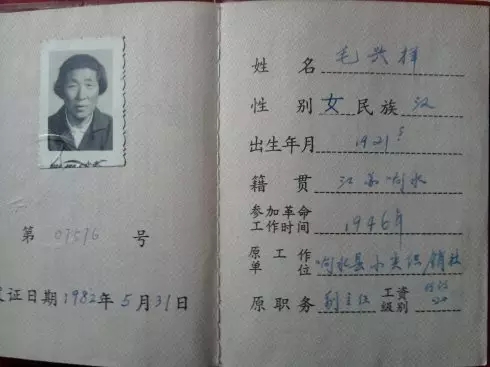 第 01516 号
发证日期1982年5月31日
姓 名 毛兴祥
性 别 女 民族 汉
出生年月 1921
籍 贯 江苏响水
参加革命
工作时间 1946年
原 工 作
单 位 响水县小尖供销社
原职务 副主任 工资
级别